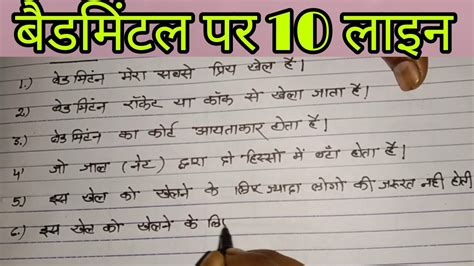 बैडमिंटल पर 10 लाइन
1.) बेडमिटंन मेरा सबसे प्रिय खेल है।
2.) बेडमिटंन रॉकेट या कॉक से खेला जाता है।
3.) बेडमिटंन का कोर्ट आयताकार होता है।
4' जो जाल (नेट) द्वारा दो हिस्सों में बँटा होता है।
5.) इस खेल को खेलने के लिए ज्यादा लोगो की जरूरत नही होती
6.) इस खेल को खेलने के लि